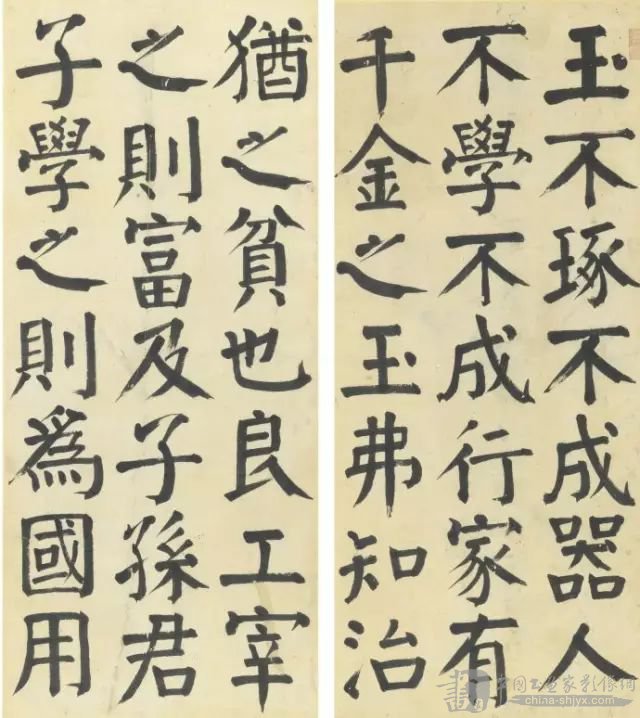 玉不琢不成器人
不學不成行家有
千金之玉弗知治
猶之貧也良工宰
之則富及子孫君
子學之則爲國用
中国书画家影像网
china-shjyx.com